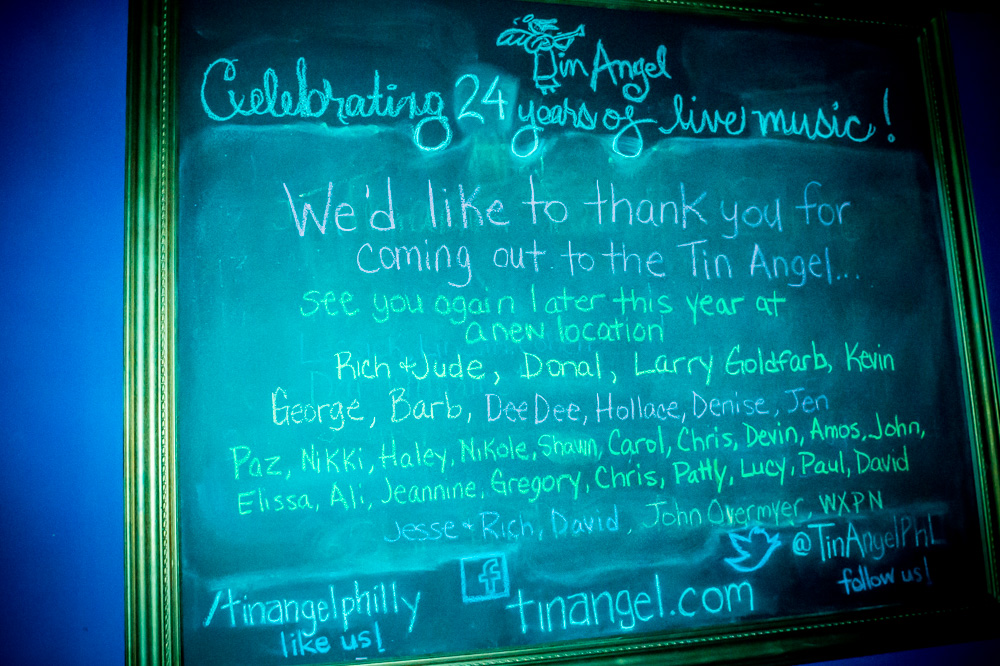 Tin Angel
Celebrating 24 years of live music!
We'd like to thank you for
coming out to the Tin Angel...
see you again later this year at
a new location
Rich + Jude, Donal, Larry Goldfarb, Kevin
George, Barb, DeeDee, Hollace, Denise, Jen
Paz, Nikki, Haley, Nikole, Shawn, Carol, Chris, Devin, Amos, John,
Elissa, Ali, Jeannine, Gregory, Chris, Patty, Lucy, Paul, David
Jesse + Rich, David, John Overmyer, WXPN
@TinAngelPhL
follow us!
f
/tinangelphilly
like us!
tinangel.com